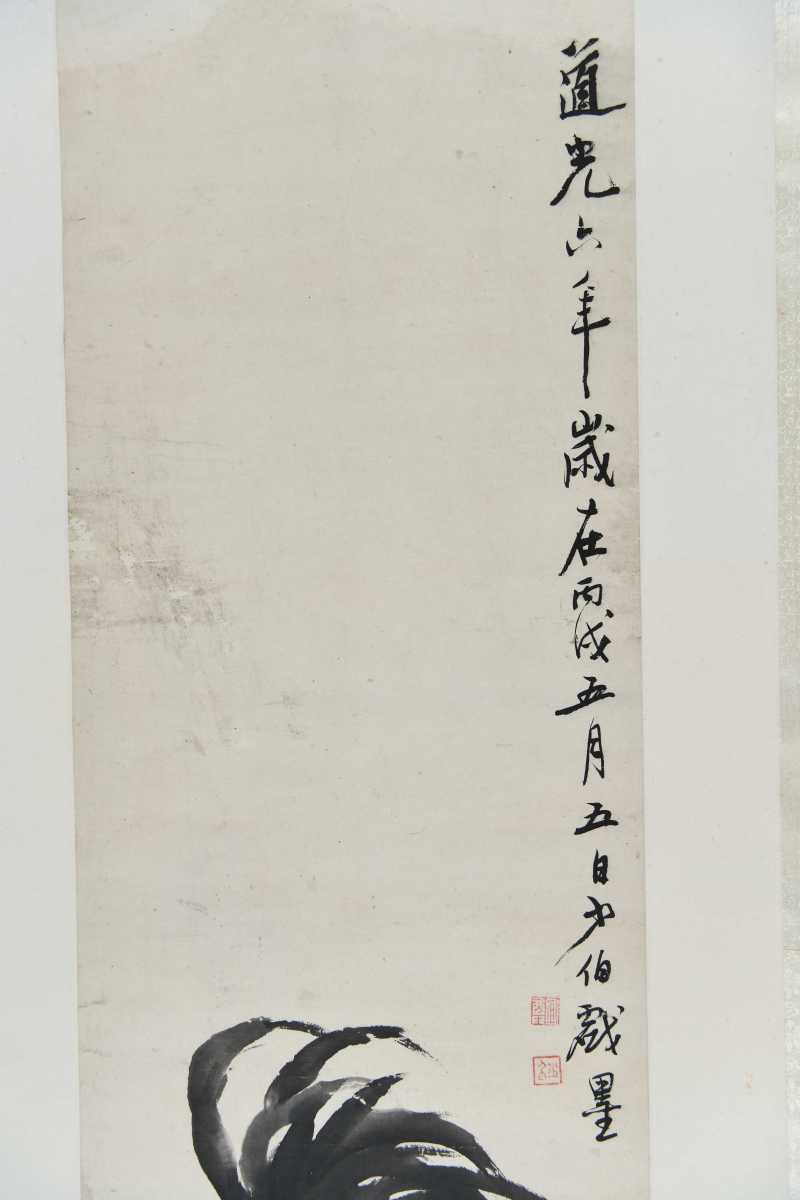 道光六年歲在丙戌五月五日少伯戲墨